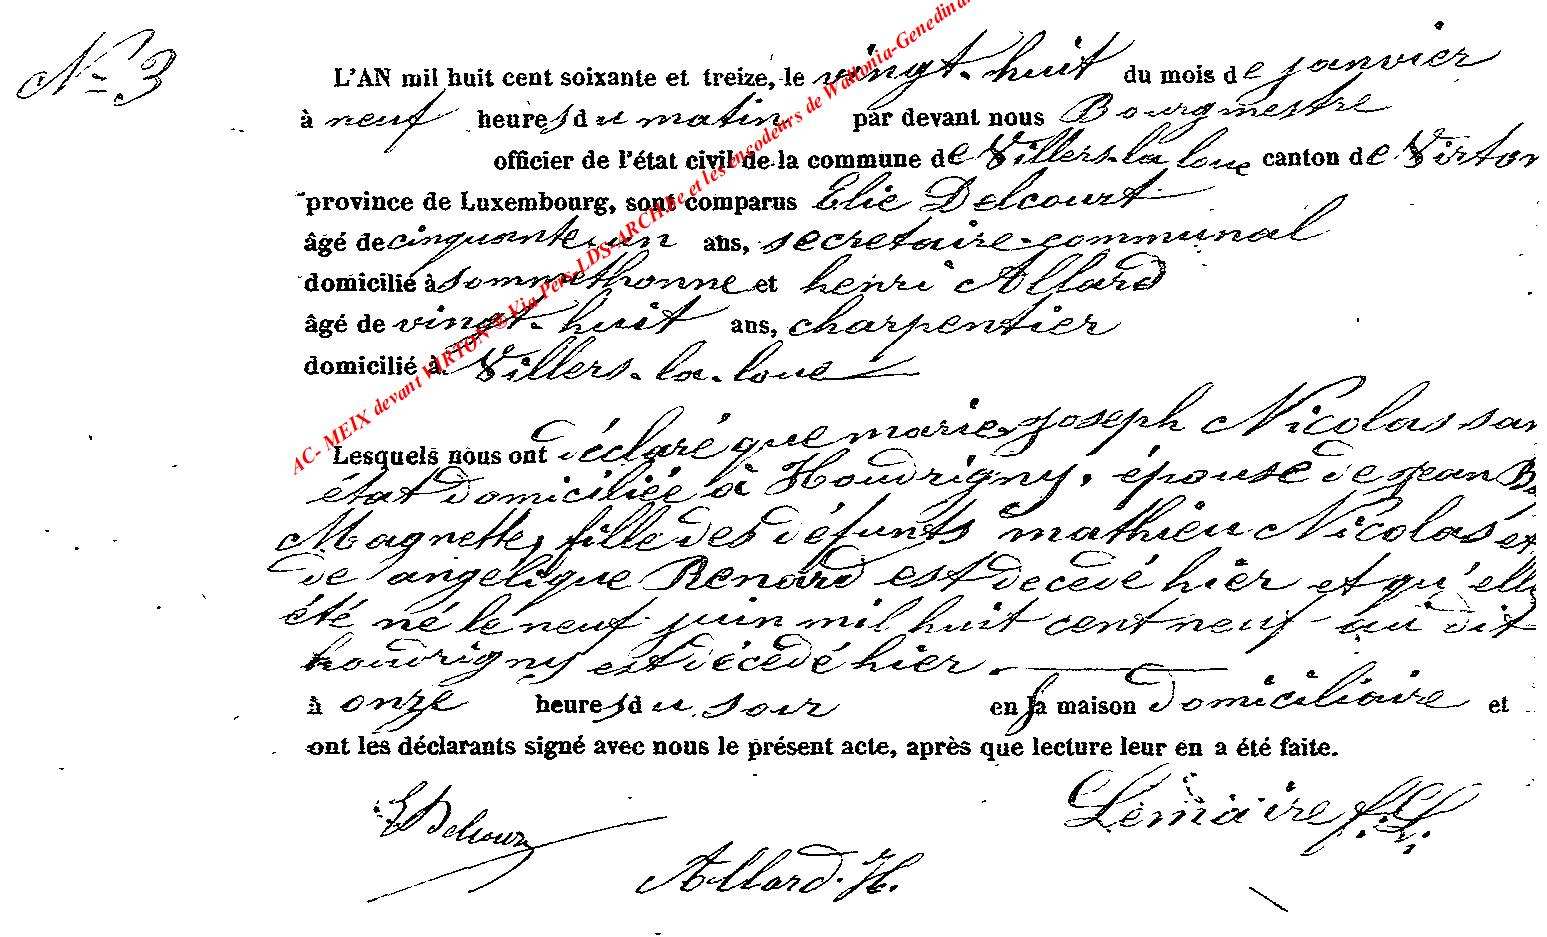 N° 3
L'AN mil huit cent soixante et treize, le vingt-huit du mois de janvier
à neuf heures du matin par devant nous Bourgmestre
officier de l'état civil de la commune de Villers-la loue canton de Virton
province de Luxembourg, sont comparus Elie Delcourt
âgé de cinquante un ans, secretaire-communal
domicilié à sommethonne et henri Allard
âgé de vingt-huit ans, charpentier
domicilié à Villers-la-loue
Lesquels nous ont déclaré que marie-joseph Nicolas san
état domiciliée à Houdrigny, épouse de jean B
Magnette, fille des défunts mathieu Nicolas et
de angelique Renard est decedé hier et qu'elle
été né le neuf juin mil huit cent neuf au dit
houdrigny est décedé hier.
à onze heures du soir en sa maison domiciliaire et
ont les déclarants signé avec nous le présent acte, après que lecture leur en a été faite.
E Delcour
Lemaire f.
Allard. H.
AC- MEIX devant VIRTON © Via Pers-LDS-ARCH.be et les encodeurs de Wallonia-Genedinar